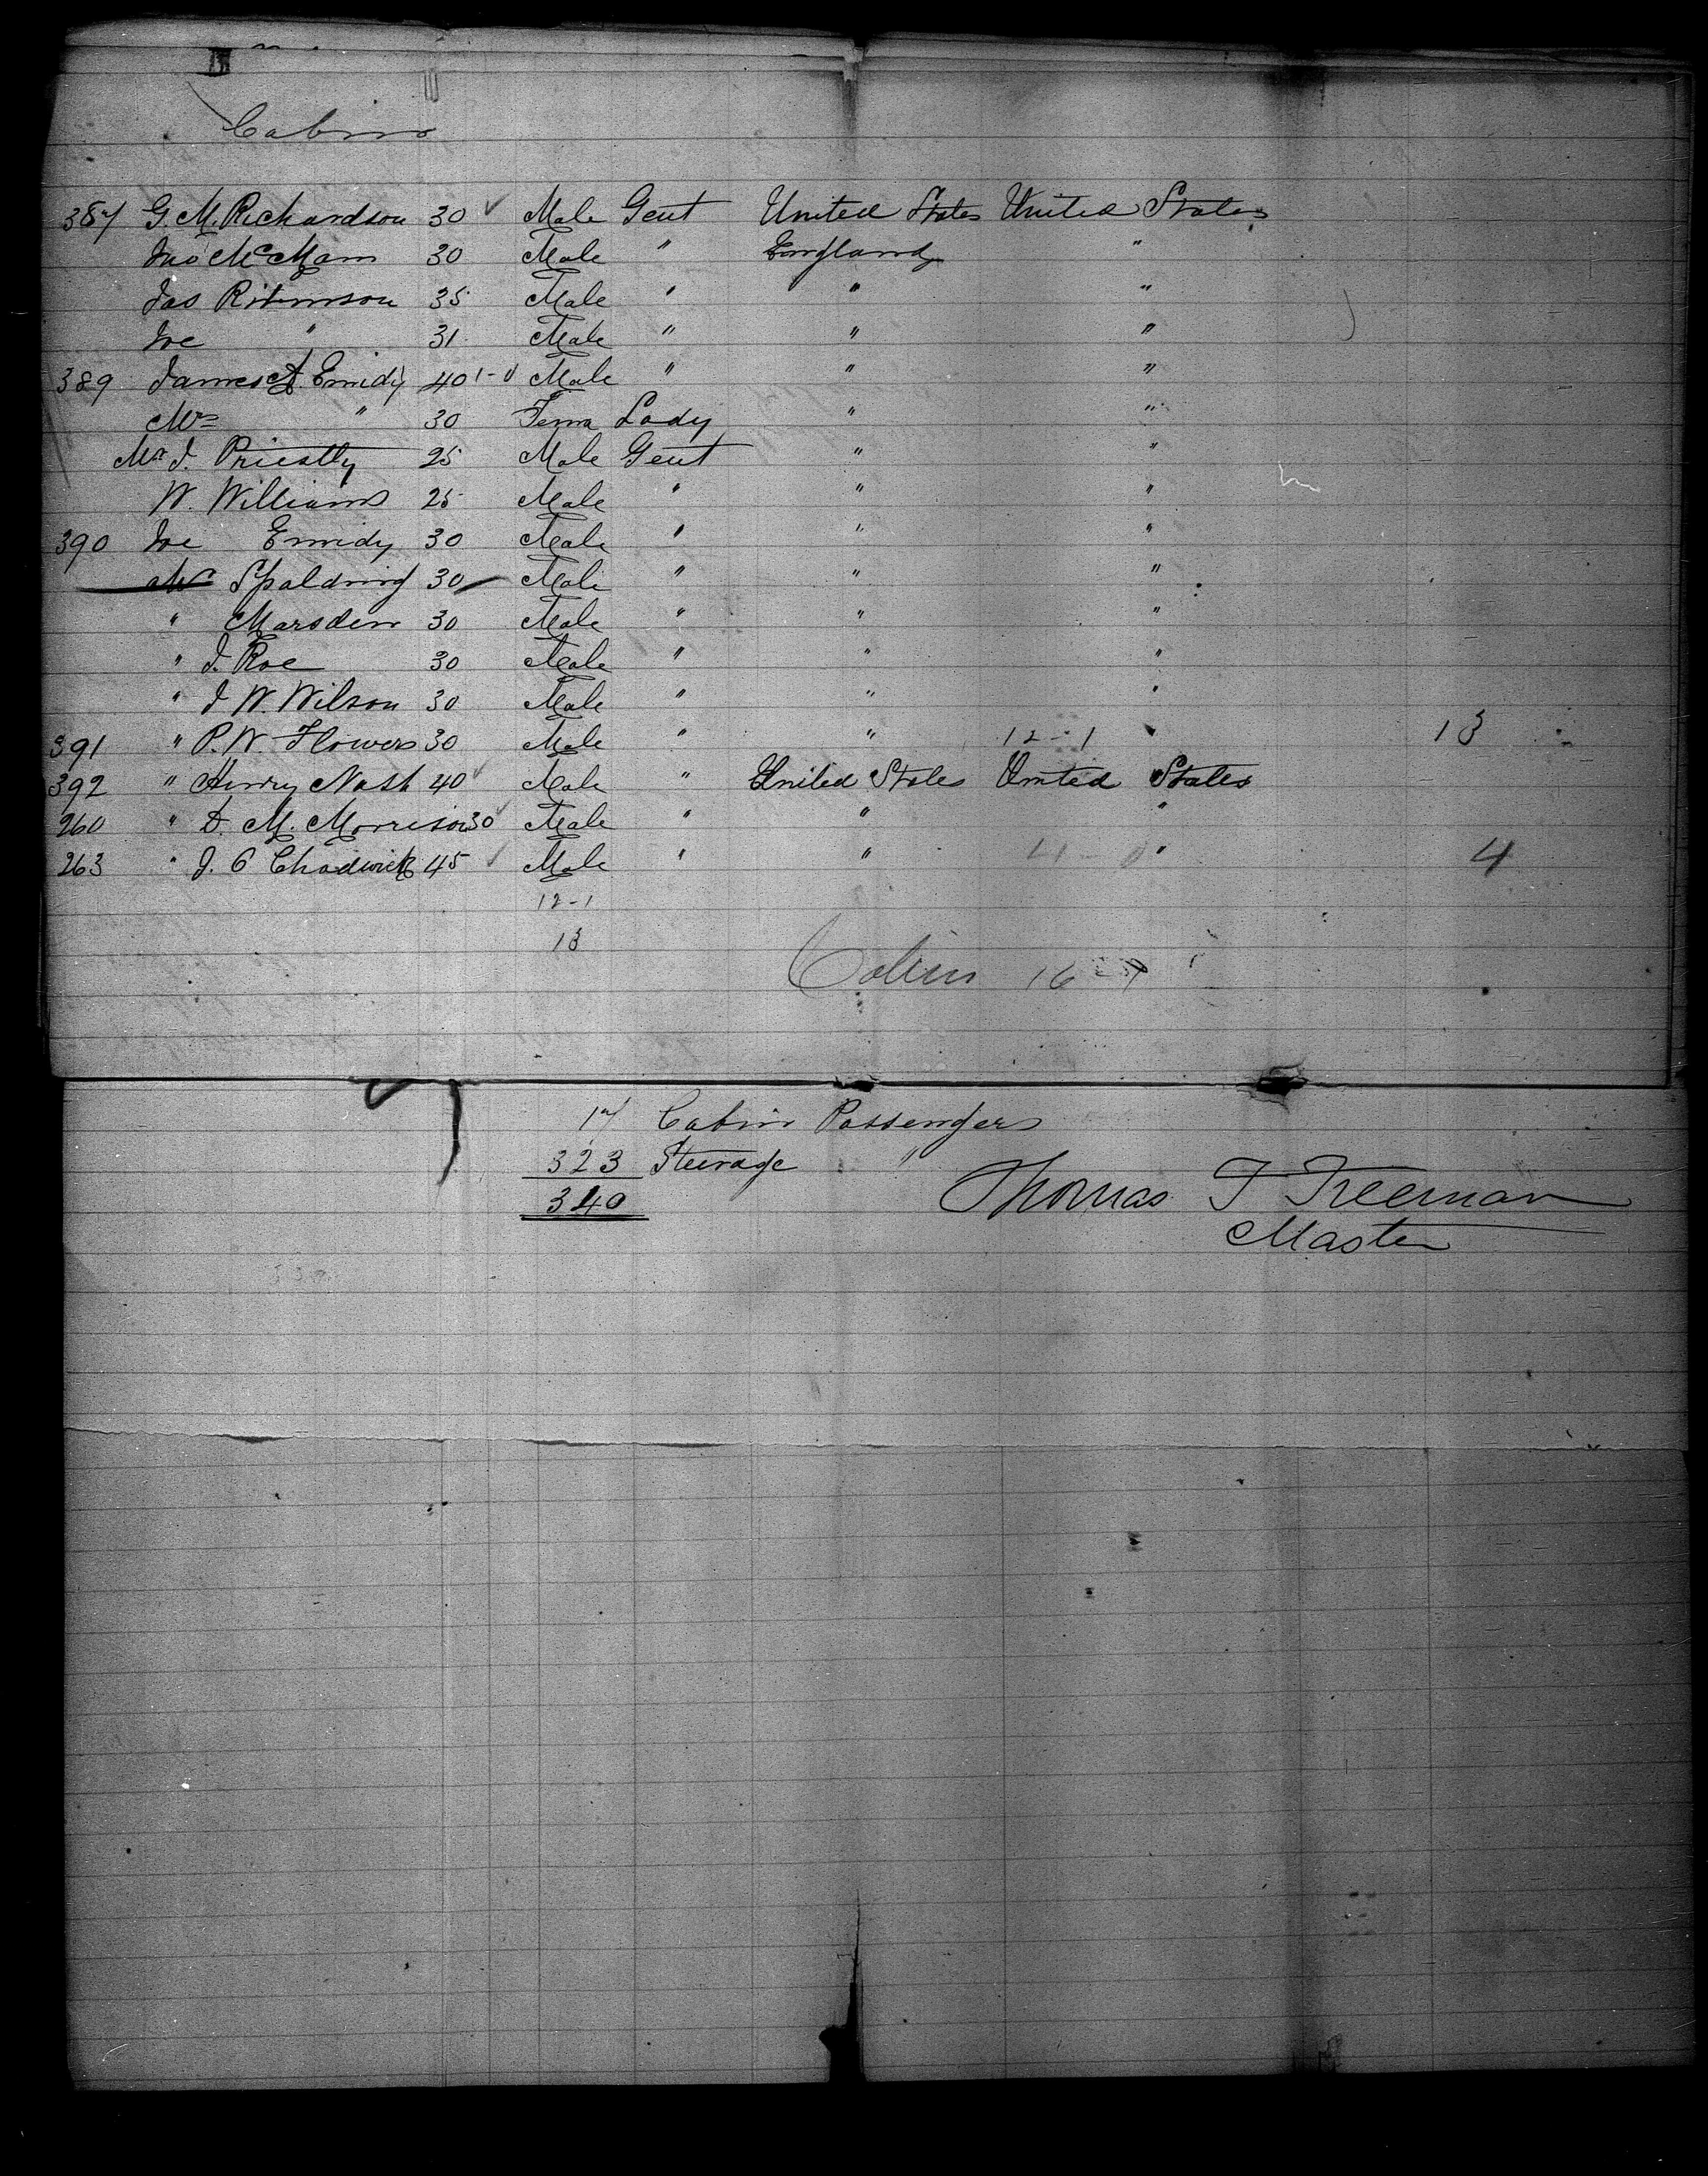 Cabin
387 G. M. Richardson 30 ✓ Male Gent United States United States
Jno McMann 30 Male " England "
Jas Robinson 35 Male " " "
Joe " 31 Male " " "
389 James A. Emidy 40 1-0 Male " " "
Mrs " 30 Fema Lady " "
Mr J. Priestly 25 Male Gent " "
W. Williams 25 Male " " "
390 Joe Emidy 30 Male " " "
Mr Spalding 30 Male " " "
" Marsden 30 Male " " "
" J. Roe 30 Male " " "
" J W. Wilson 30 Male " " "
391 " P. W. Flowers 30 Male " " 12-1 " 13
392 " Henry Nash 40 ✓ Male " United States United States
260 " D. M. Morrison 30 ✓ Male " " "
263 " J. C Chadwick 45 ✓ Male " " 4-0 " 4
12-1
13
Cabin 16-1
17 Cabin Passengers
323 Steerage "
340
Thomas T Freeman
Master